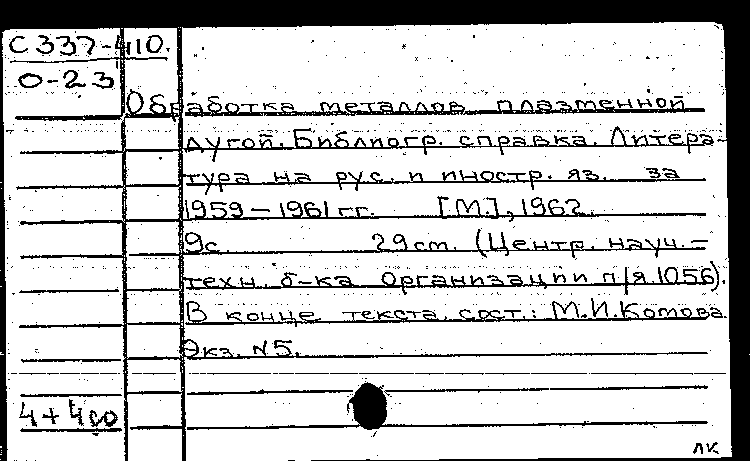 С 337-410.
О-23
Обработка металлов плазменной
дугой. Библиогр. справка. Литера-
тура на рус. и иностр. яз. за
1959-1961 гг. [М.], 1962.
9с. 29 cm. (Центр. науч.-
техн. б-ка организации п/я 1056).
В конце текста сост.: М.И.Котова.
Экз. №5.
4+4
лк